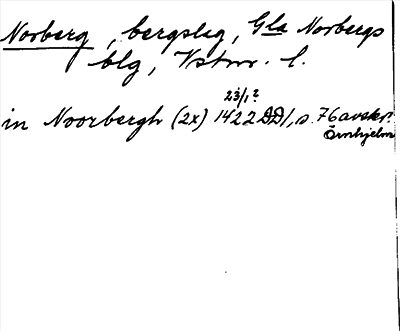 Norberg, bergslag, Gla Norbergs
blg, Vstm. l.
23/1?
in Noorbergh (2x) 1422 DD1, s. 76 avskr.
Örnhjelm